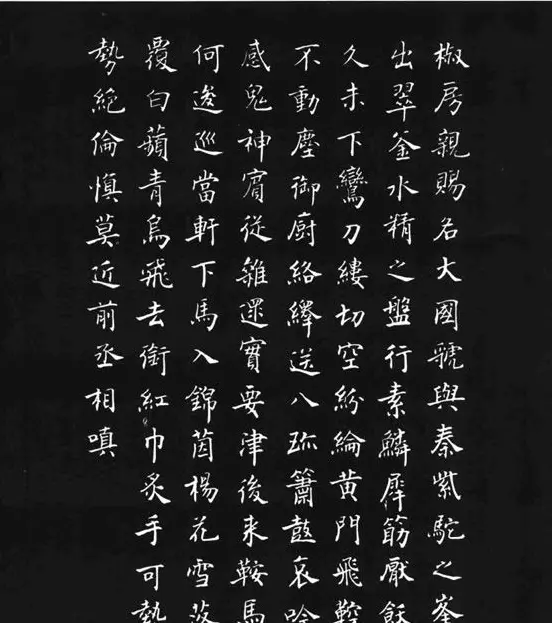 椒房親賜名大國虢與秦紫駝之峯
出翠釜水精之盤行素鱗犀筯厭飫
久未下鸞刀縷切空紛綸黄門飛鞚
不動塵御廚絡繹送八珎簫鼓哀吟
感鬼神賓從雜還實要津後来鞍馬
何逡巡當軒下馬入錦茵楊花雪落
覆白蘋青鳥飛去銜紅巾炙手可熱
勢絶倫慎莫近前丞相嗔